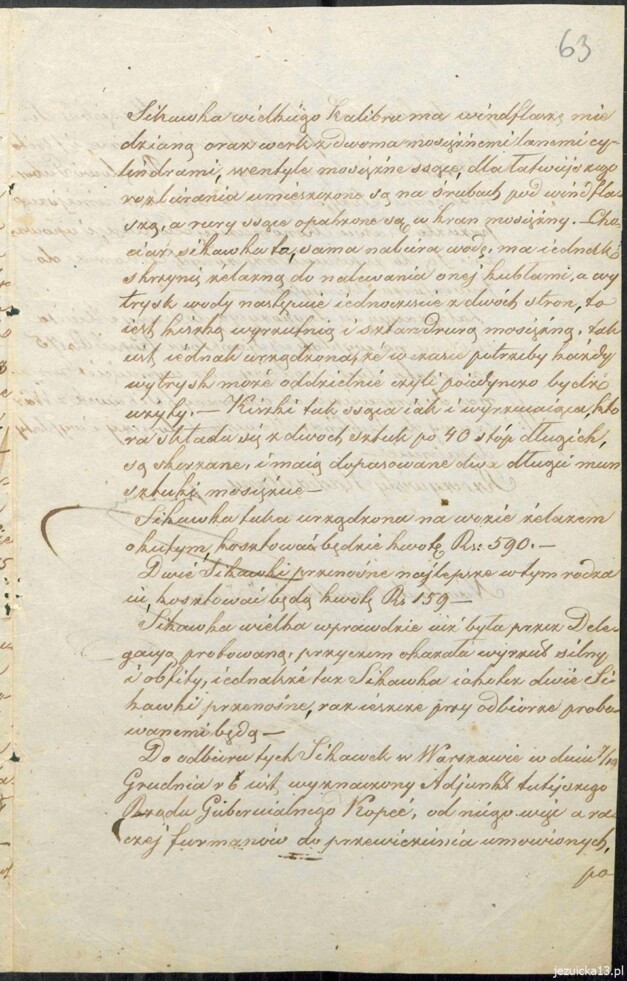 63
Sikawka wielkiego kalibra ma windflaszę mie
dzianą oraz werk z dwoma mosiężnemi lanemi cy-
lindrami, wentyle mosiężne ssące, dla łatwiejszego
rozbierania umieszczone są na śrubach pod windfla-
szą, a rury ssące opatrzone są w kran mosiężny. – Cho-
ciaż sikawka ta, sama nabiera wodę, ma iednak
skrzynię żelazną do nalewania onej kubłami, a wy
trysk wody następuie iednocześnie z dwóch stron, to
iest kiszką wyrzutnią i sztandrurą mosiężną, tak
iest iednak urządzona, że w czasie potrzeby każdy
wytrysk może oddzielnie czyli poiedynczo bydź
użyty. – Kiszki tak ssąca iak i wyrzucaiąca, któ
ra składa się z dwóch sztuk po 40 stóp długich,
są skorzane, i maią dopasowane dwa długie mun
sztuki mosiężne –
Sikawka taka urządzona na wozie żelazem
okutym, kosztować będzie kwotę Rs: 590. –
Dwie Sikawki przenośne najlepsze w tym rodza
iu, kosztować będą kwotę Rs 159 –
Sikawka wielka wprawdzie iuż była przez Dele-
gacyą probowaną, przyczem okazała wyrzut silny
i obfity, iednakże taż Sikawka iakoteż dwie Si
kawki przenośne, raz ieszcze przy odbiorze probo-
wanemi będą –
Do odbioru tych Sikawek w Warszawie w dniu 7/19
Grudnia r b iest wyznaczony Adjunkt tutejszego
Rządu Gubernialnego Kopeć, od niego więc a ra-
czej furmanów do przewiezienia umówionych,
po
jezuicka13.pl